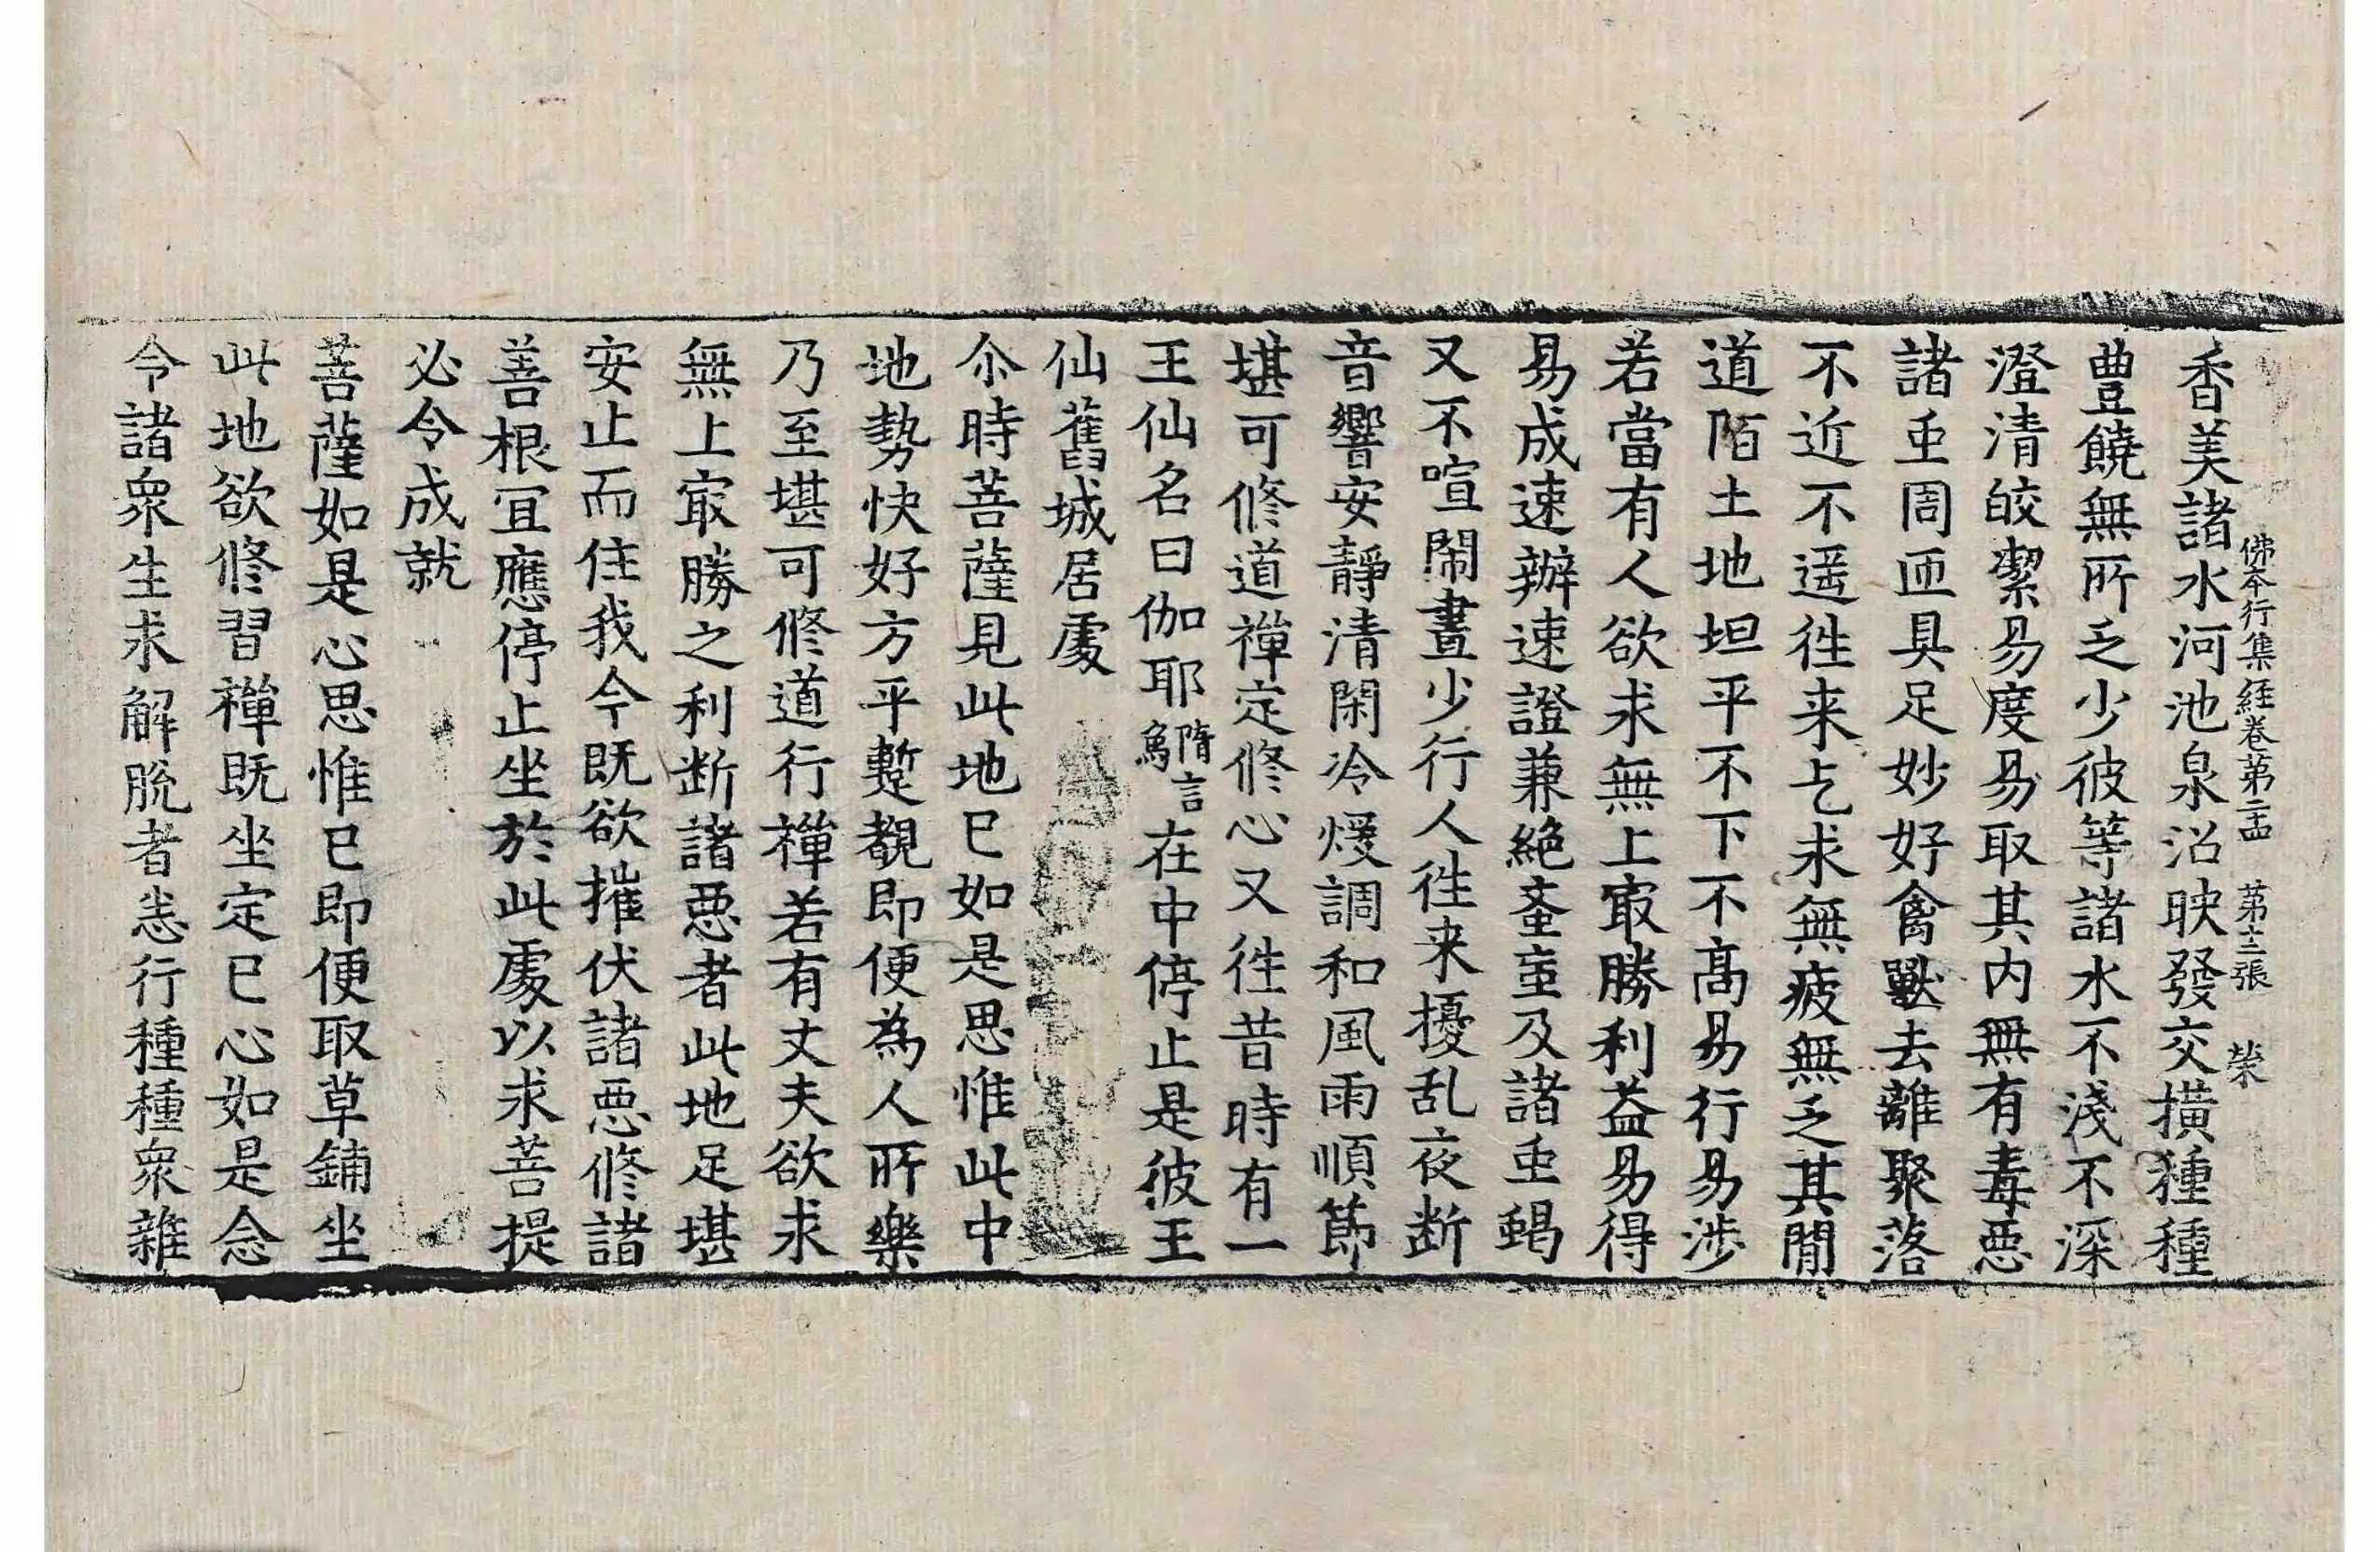 佛夲行集経卷苐二十四　苐十三張　榮
香美諸水河池泉沼映發交橫種種
豊饒無所乏少彼等諸水不淺不深
澄清皎潔易度易取其内無有毒惡
諸䖝周匝具足妙好禽獸去離聚落
不近不遥往来乞求無疲無乏其閒
道陌土地坦平不下不髙易行易涉
若當有人欲求無上㝡勝利益易得
易成速辦速證兼絶蚉䖟及諸䖝蝎
又不喧閙晝少行人往来擾乱夜断
音響安靜清閑冷煖調和風雨順莭
堪可修道禪定修心又往昔時有一
王仙名曰伽耶隋言象在中停止是彼王
仙舊城居處
尒時菩薩見此地已如是思惟此中
地勢快好方平蹔覩即便為人所樂
乃至堪可修道行禪若有丈夫欲求
無上㝡勝之利断諸惡者此地足堪
安止而住我今既欲摧伏諸惡修諸
善根冝應停止坐於此處以求菩提
必令成就
菩薩如是心思惟已即便取草鋪坐
此地欲修習禪既坐定已心如是念
令諸衆生求解脫者恙行種種衆雜